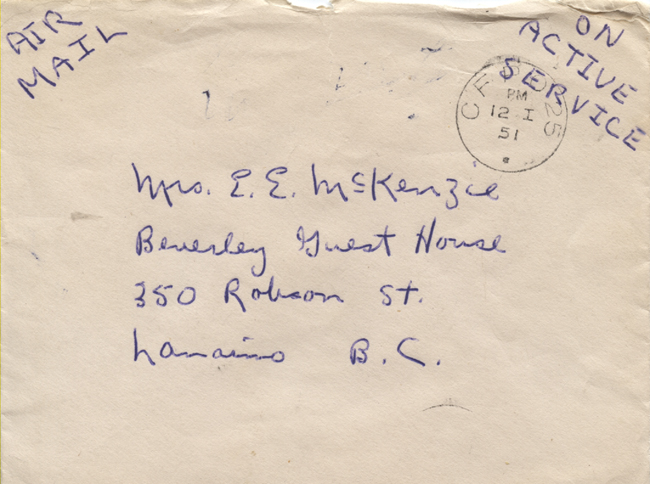 AIR
MAIL
ON
ACTIVE
SERVICE
CFPO 25
PM
12 I
51
Mrs. E. E. McKenzie
Beverley Guest House
350 Robson St.
Nanaimo B.C.